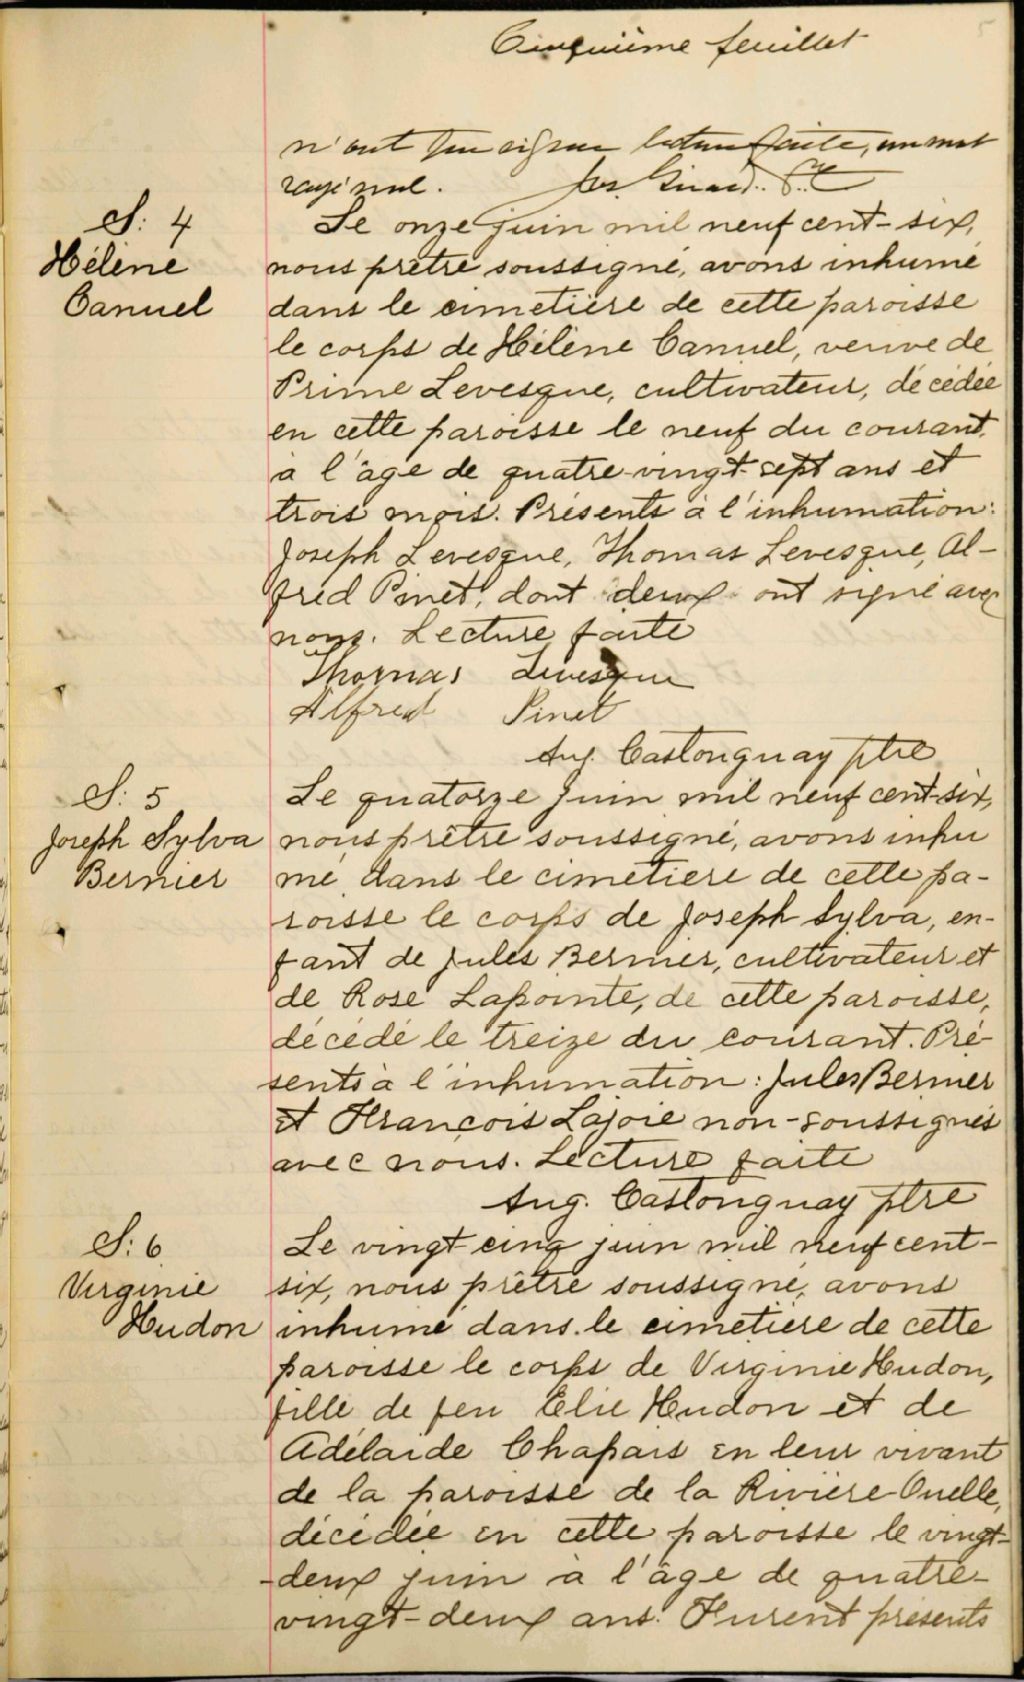 Cinquième feuillet
5
n'ont pu signer lecture faite, un mot
rayé nul. Jos. Girard. Ptre
S: 4
Hélène
Canuel
Le onze juin mil neuf cent-six,
nous prêtre soussigné, avons inhumé
dans le cimetière de cette paroisse
le corps de Hélène Canuel, veuve de
Prime Levesque, cultivateur, décédée
en cette paroisse le neuf du courant,
à l'âge de quatre-vingt-sept ans et
trois mois. Présents à l'inhumation:
Joseph Levesque, Thomas Levesque, Al-
fred Pinet, dont deux ont signé avec
nous. Lecture faite
Thomas Levesque
Alfred Pinet
Aug. Castonguay ptre
S: 5
Joseph Sylva
Bernier
Le quatorze juin mil neuf cent-six,
nous prêtre soussigné, avons inhu
mé dans le cimetière de cette pa-
roisse le corps de Joseph Sylva, en-
fant de Jules Bernier, cultivateur et
de Rose Lapointe, de cette paroisse,
décédé le treize du courant. Pré-
sents à l'inhumation: Jules Bernier
et François Lajoie non-soussignés
avec nous. Lecture faite
Aug. Castonguay ptre
S: 6
Virginie
Hudon
Le vingt-cinq juin mil neuf cent-
six, nous prêtre soussigné, avons
inhumé dans le cimetière de cette
paroisse le corps de Virginie Hudon,
fille de feu Elie Hudon et de
Adélaide Chapais en leur vivant
de la paroisse de la Rivière-Ouelle,
décédée en cette paroisse le vingt-
-deux juin à l'âge de quatre-
vingt-deux ans. Furent présents